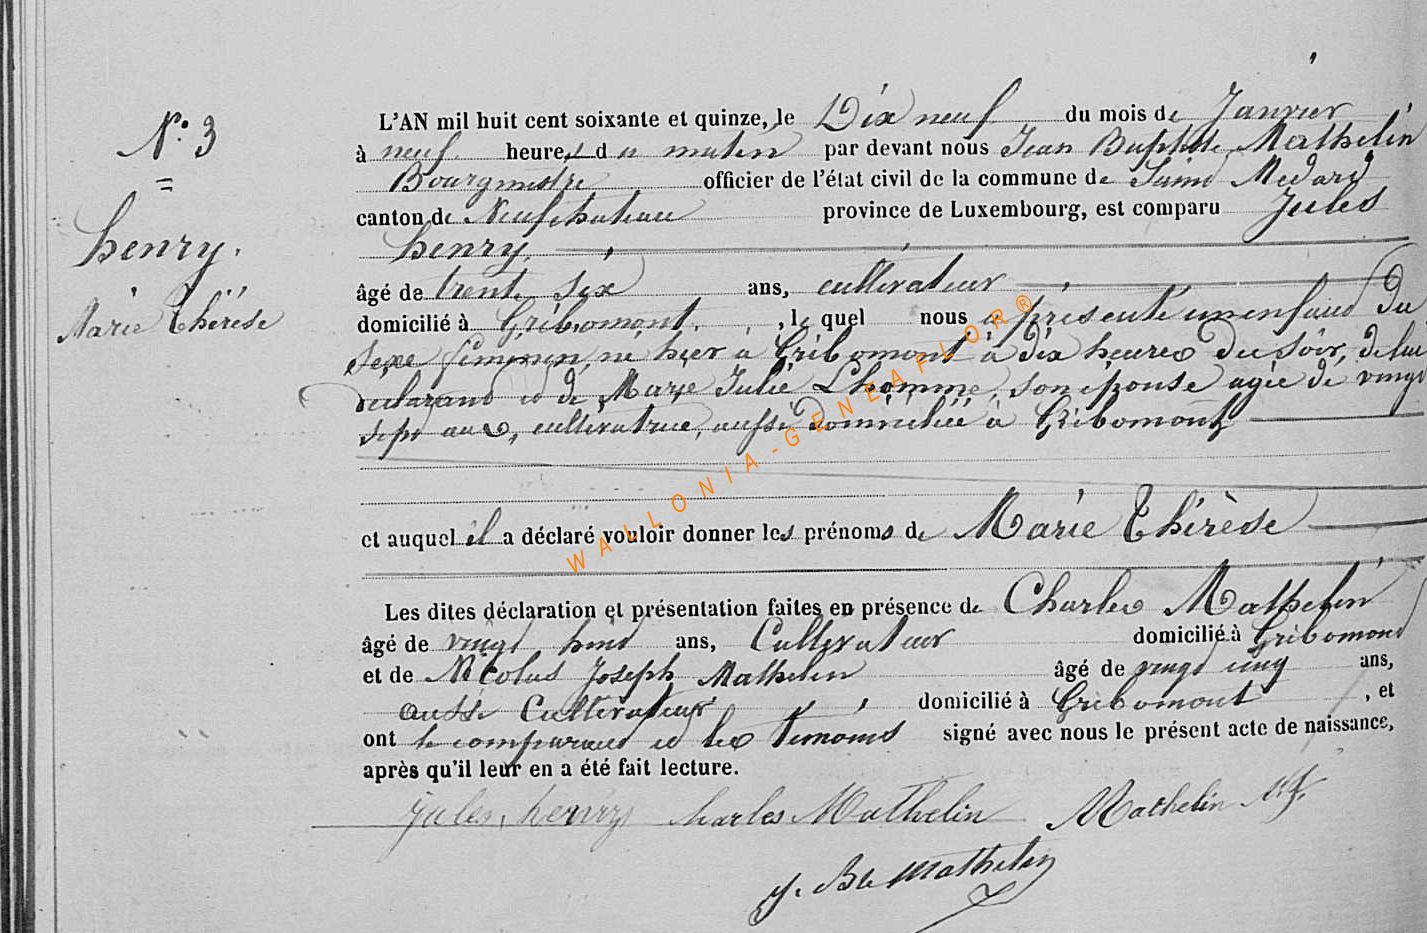 N.o 3
=
henry.
Marie Thérèse
L'AN mil huit cent soixante et quinze, le Dix neuf du mois de Janvier
à neuf heures du matin par devant nous Jean Baptiste Mathelin
Bourgmestre officier de l'état civil de la commune de Saint Médard
canton de Neufchateau province de Luxembourg, est comparu Jules
henry,
âgé de trente six ans, cultivateur
domicilié à Gribomont, le quel nous a présenté un enfant du
sexe féminin, né hier à Gribomont à dix heures du soir, de lui
déclarant et de Marie Julie Lhomme, son épouse agée de vingt
sept ans, cultivatrice, aussi domiciliée à Gribomont
et auquel il a déclaré vouloir donner les prénoms de Marie Thérèse
Les dites déclaration et présentation faites en présence de Charles Mathelin
âgé de vingt huit ans, Cultivateur domicilié à Gribomont
et de Nicolas Joseph Mathelin âgé de vingt cinq ans,
aussi Cultivateur domicilié à Gribomont, et
ont le comparant et les témoins signé avec nous le présent acte de naissance,
après qu'il leur en a été fait lecture.
Jules henry Charles Mathelin Mathelin N. J.
J. Bte Mathelin
WALLONIA-GENEAFLOR®